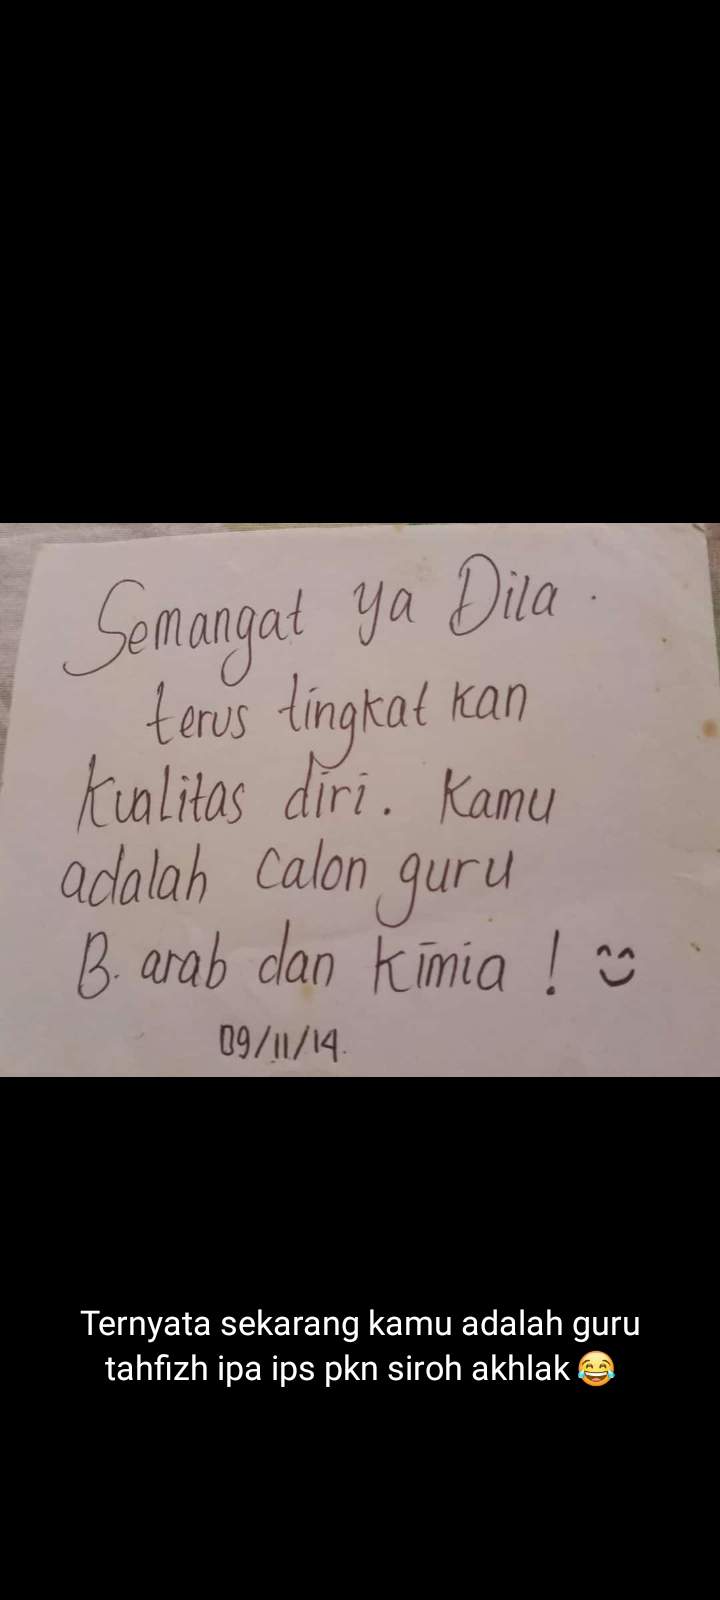 Semangat ya Dila.
terus tingkat kan
kualitas diri. Kamu
adalah calon guru
B. arab dan kimia !
09/11/14.
Ternyata sekarang kamu adalah guru
tahfizh ipa ips pkn siroh akhlak 😂